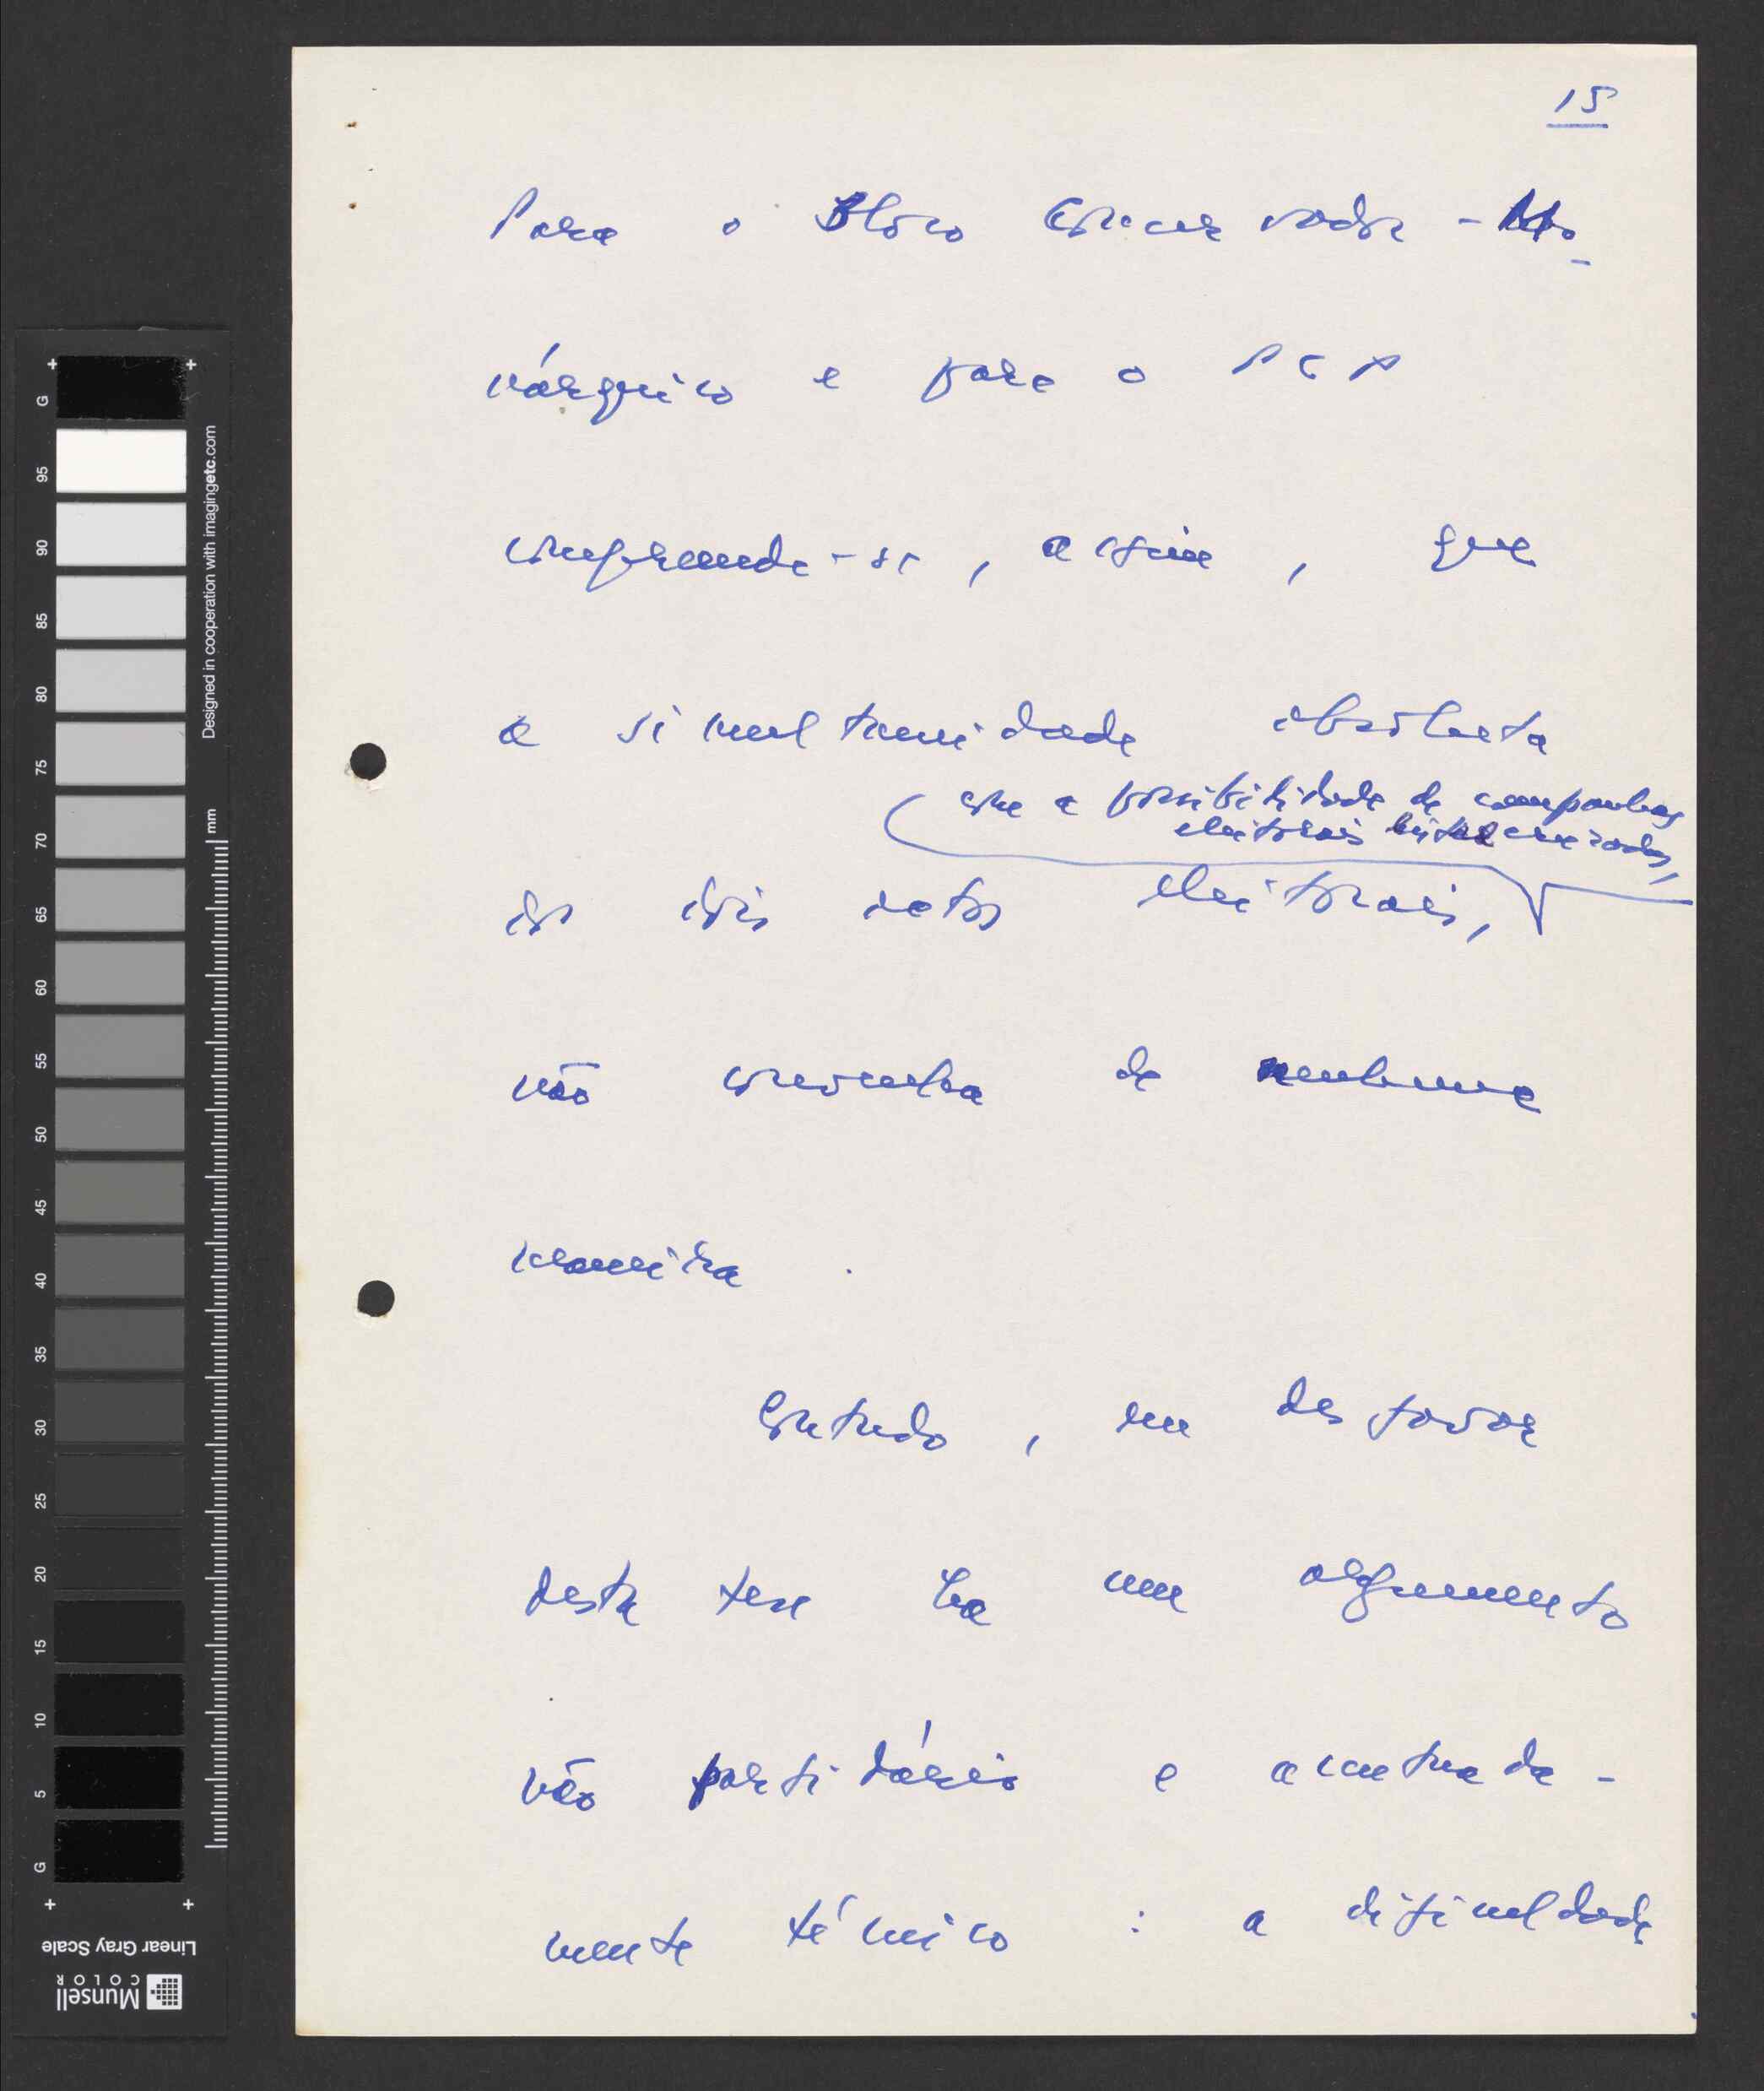 15
Para o Bloco Conservador-Mo-
nárquico e para o PCP
compreende-se, assim, que
a simultaneidade absoluta
com a possibilidade de campanhas
eleitorais entrecruzadas,
dos dois actos eleitorais,
não convenha de nenhuma
maneira.
Contudo, em desfavor
desta tese há um argumento
não partidário e acentuada-
mente técnico: a dificuldade
G
95
90
85
80
75
70
65
60
55
50
45
40
35
30
25
20
15
10
5
G
Designed in cooperation with imagingetc.com
mm
Linear Gray Scale
Munsell
COLOR